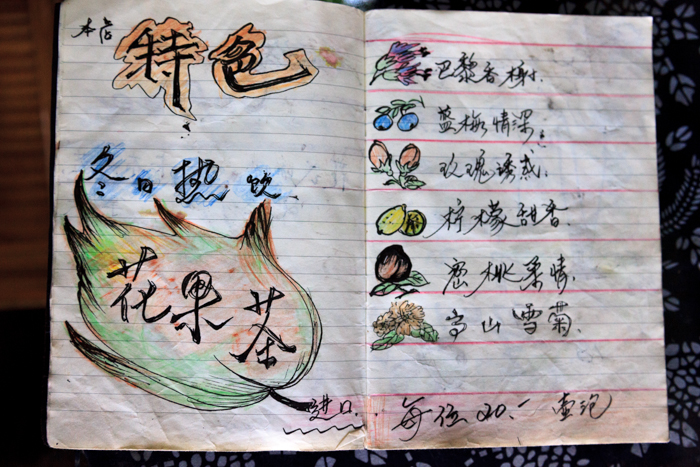 本店
特色
冬日热饮
花果茶
进口.
巴黎香榭.
蓝梅情深.
玫瑰诱惑.
柠檬甜香.
蜜桃柔情.
高山雪菊.
每位20.一壶泡